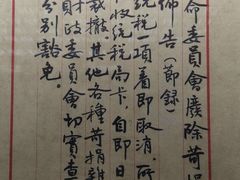 命委員會廢除苛捐
佈告(節錄)
統稅一項着即取消，所
收統稅局卡自即日
裁撤其他各種苛捐雜
財政委員會切實查
分别豁免。